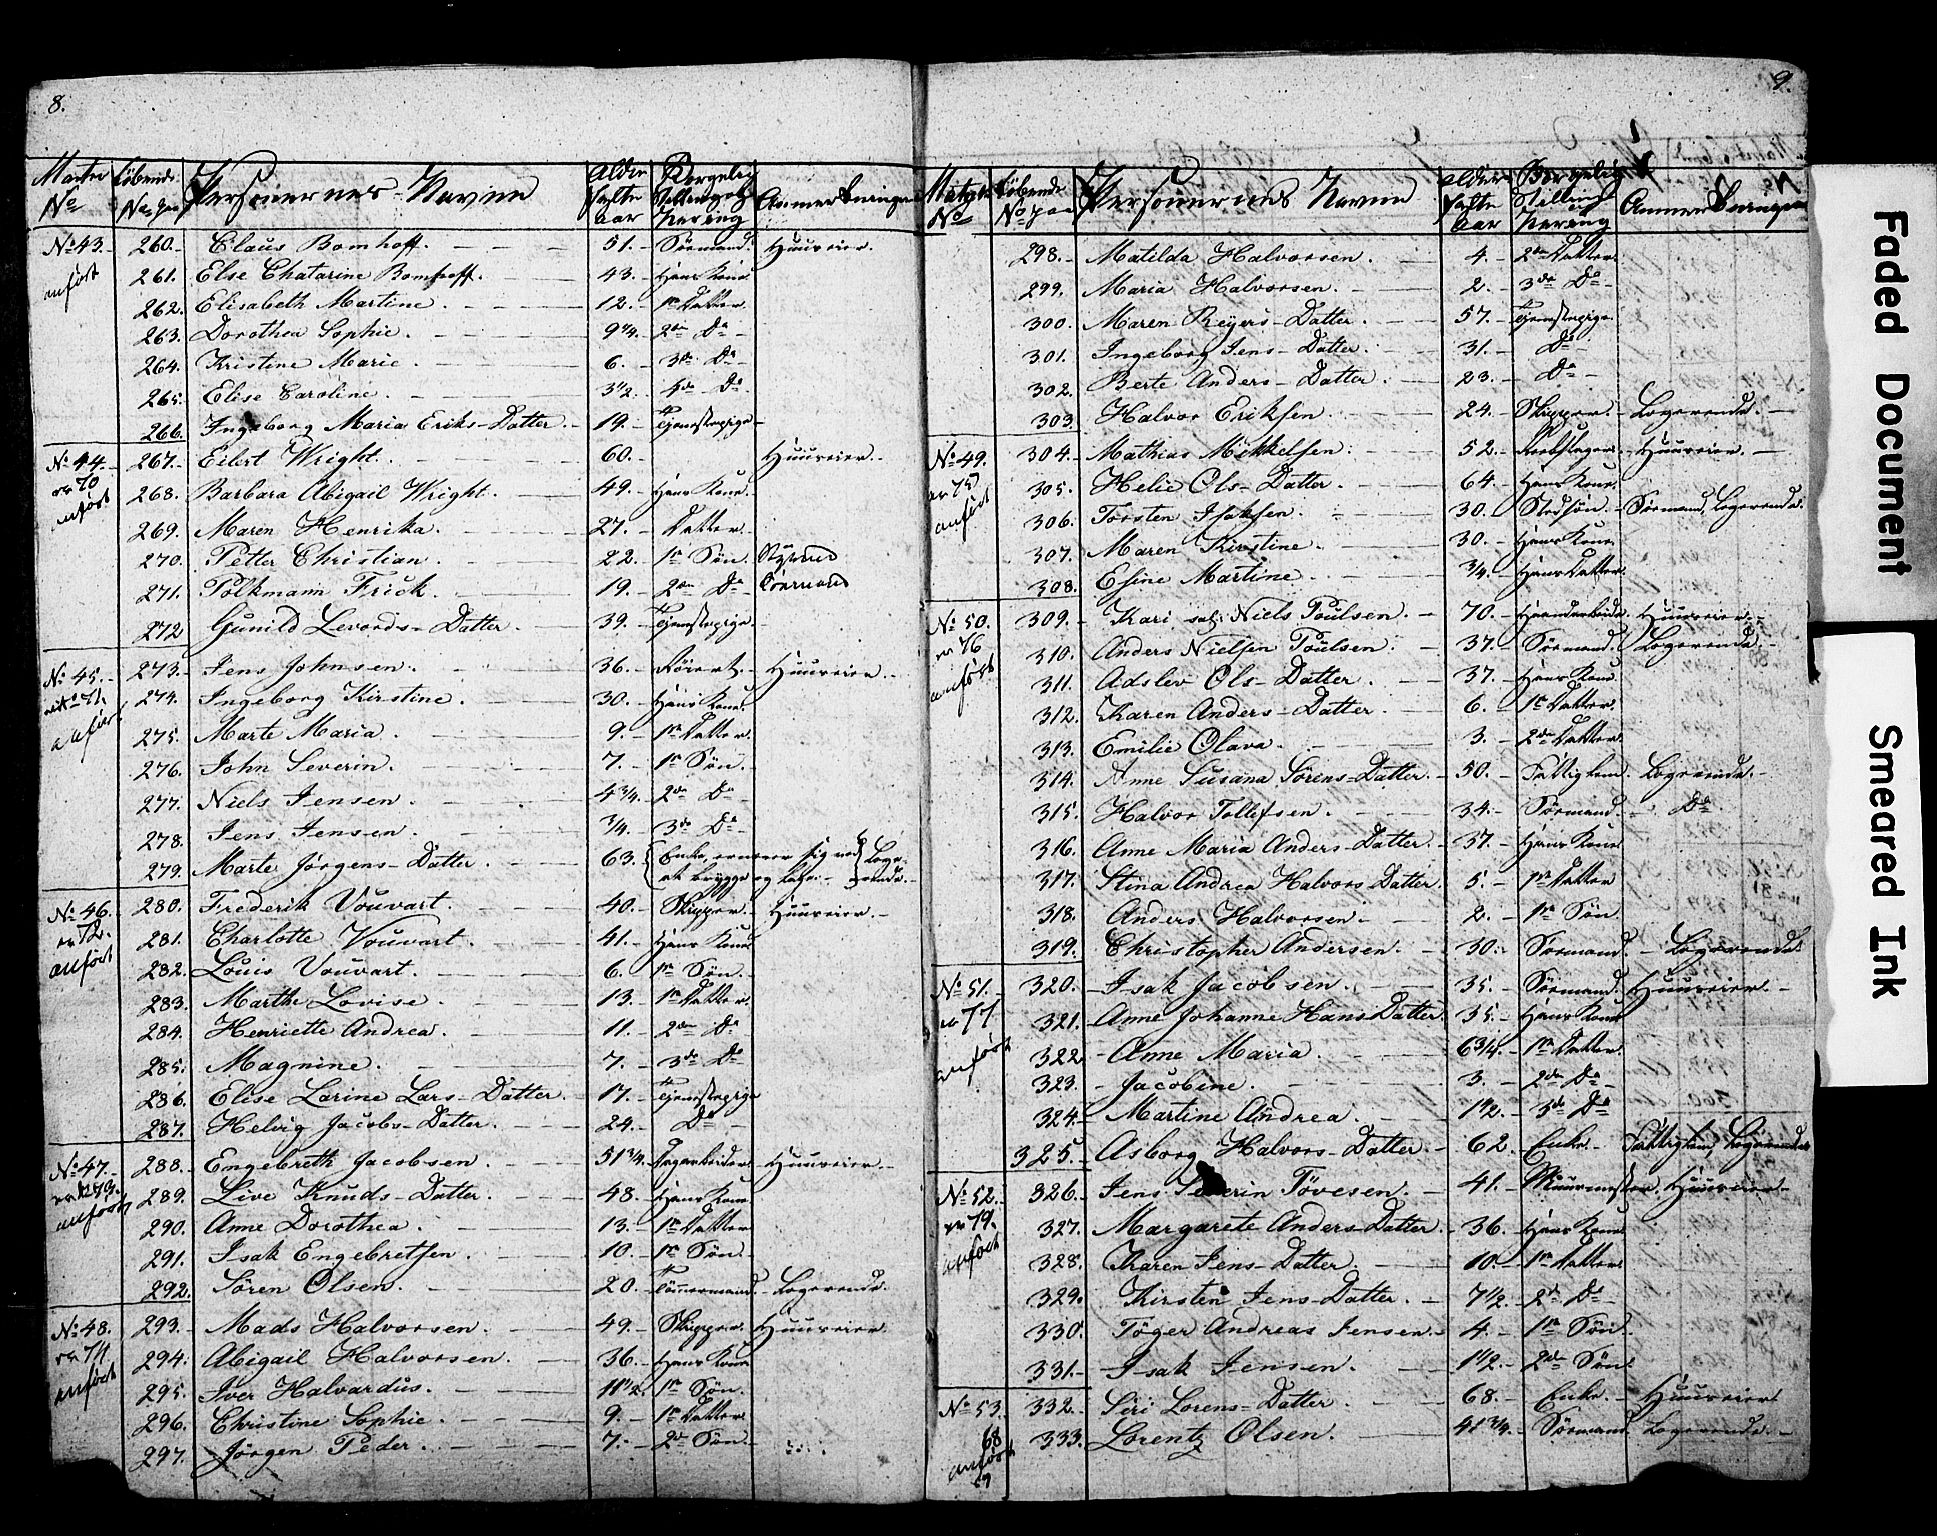 8.
No Personernes Navne
No 43. 260. Claus Bomhoff. 51. Sømand. Huuseier.
anført 261. Else Chatarine Bomhoff. 43. Hans Kone
262. Elisabeth Martine. 12. 1ste Datter.
263. Dorothea Sophie. 9 1/4. 2den Do
264. Kristine Marie. 6. 3de Do
265. Elise Caroline. 3 1/2. 4de Do
266. Ingeborg Maria Eriks-Datter. 19. Tjenestepige
No 44. 267. Eilert Wright. 60. Huuseier.
70 268. Barbara Abigail Wright. 49. Hans Kone.
anført 269. Maren Henrika. 27. Datter.
270. Petter Christian. 22. 1ste Søn. Styrmand
271. Tolkmann Frick. 19. 2den Do
272 Gunild Levords-Datter. 39. Tjenestepige
No 45. 273. Jens Johnsen. 36. Huuseier.
71. 274. Ingeborg Kirstine. 30. Hans Kone.
anført 275. Marte Maria. 9. 1ste Datter.
276. John Severin. 7. 1ste Søn.
277. Niels Jensen. 4 3/4. 2den Do
278. Jens Jensen. 3/4. 3de Do
279. Marte Jörgens-Datter. 63. Enke, ernærer sig ved Loge-
at brygge og rende.
No 46. 280. Frederik Vouvart. 40. Skipper. Huuseier.
72. 281. Charlotte Vouvart. 41. Hans Kone
anført 282. Louis Vouvart. 6. 1ste Søn.
283. Marthe Lovise. 13. 1ste Datter.
284. Henriette Andrea. 11. 2den Do
285. Magnine. 7. 3de Do
286. Elise Larine Lars-Datter. 17. Tjenestepige
287. Helvig Jacobs-Datter. 24. Do
No 47. 288. Engebreth Jacobsen. 51 3/4. Dagarbeider. Huuseier.
73. 289. Live Knuds-Datter. 48. Hans Kone
anført 290. Anne Dorothea. 13. 1ste Datter
291. Isak Engebretsen. 10. 1ste Søn.
292. Sören Olsen. 20. Tømmermand. Logerende.
No 48. 293. Mads Halvorsen. 49. Skipper. Huuseier.
74 294. Abigail Halvorsen. 36. Hans Kone
anført 295. Iver Halvardus. 11 1/2. 1ste Søn.
296. Christine Sophie. 9. 1ste Datter
297. Jörgen Peder. 7. 2den Søn.
9.
No Personernes Navne
298. Matilda Halvorsen. 4. 2den Datter.
299. Maria Halvorsen. 2. 3de Do
300. Maren Reyers-Datter. 57. Tjenestepige.
301. Ingeborg Jens-Datter. 31. Do
302. Berte Anders-Datter. 23. Do
303. Halvor Eriksen. 24. Skipper. Logerende.
No 49. 304. Mathias Mikkelsen. 52. Rebslager. Huuseier.
75 305. Helie Ols-Datter. 64. Hans Kone.
anført 306. Torsten Isaksen. 30. Stedsøn. Sømand, Logerende.
307. Maren Kirstine. 30. Hans Kone.
308. Esine Martine. 3/4. Hans Datter.
No 50. 309. Kari sal: Niels Poulsen. 70. Haandarbeide. Huuseier.
76 310. Anders Nielsen Poulsen. 37. Sømand. Logerende.
anført 311. Adslev Ols-Datter. 37. Hans Kone.
312. Karen Anders-Datter. 6. 1ste Datter.
313. Emilie Olava. 3. 2den Datter.
314. Anne Susana Sörens-Datter. 50. Fattiglem. Logerende.
315. Halvor Tollefsen. 34. Sømand. Do
316. Anne Maria Anders-Datter. 37. Hans Kone
317. Stina Andrea Halvors Datter. 5. 1ste Datter
318. Anders Halvorsen. 2. 1ste Søn
319. Christopher Andersen. 30. Sømand. Logerende.
No 51. 320. Isak Jacobsen. 35. Sømand. Huuseier.
77 321. Anne Johanne Hans Datter. 35. Hans Kone
anført 322. Anne Maria. 6 3/4. 1ste Datter.
323. Jacobine. 3. 2den Do
324. Martine Andrea. 1 1/2. 3de Do
325. Asborg Halvors-Datter. 62. Enke. Fattiglem, Logerende
No 52. 326. Jens Severin Tövesen. 41. Muurmester. Huuseier.
79. 327. Margarete Anders-Datter. 36. Hans Kone
anført 328. Karen Jens-Datter. 10. 1ste Datter
329. Kirsten Jens-Datter. 7 1/2. 2den Do
330. Töger Andreas Jensen. 4. 1ste Søn.
331. Isak Jensen. 1 1/2. 2den Søn.
No 53. 332. Siri Lorens-Datter. 68. Enke. Huuseier
68 333. Lorentz Olsen. 41 3/4. Sømand. Logerende.
anført
Faded Document
Smeared Ink